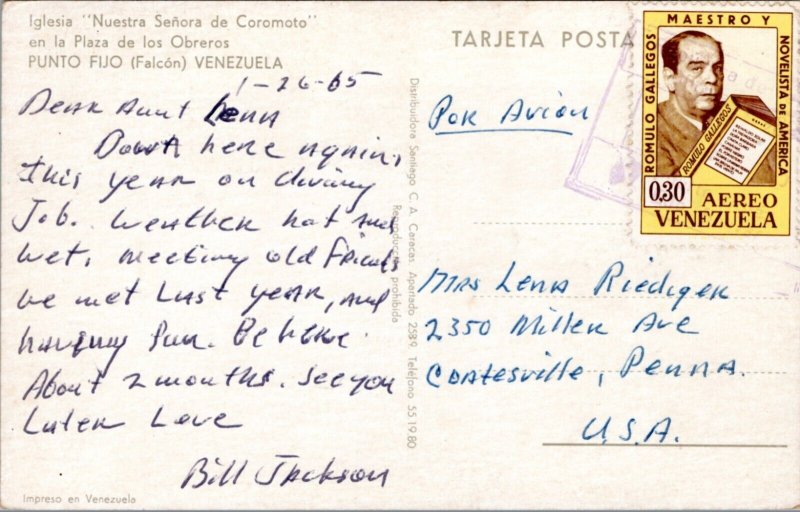 Iglesia "Nuestra Señora de Coromoto"
en la Plaza de los Obreros
PUNTO FIJO (Falcón) VENEZUELA
1-26-65
Dear Aunt Lena
Down here again,
this year on diving
Job. Weather hot and
wet, meeting old Friends
we met Last year, and
having fun. Be here
About 2 months. See you
Later Love
Bill Jackson
Impreso en Venezuela
Distribuidora Santiago C. A. Caracas. Apartado 2589. Teléfono 55 19 80
Reproducción prohibida
TARJETA POSTA
Por Avion
MAESTRO Y
NOVELISTA DE AMERICA
ROMULO GALLEGOS
ROMULO GALLEGOS
0,30
AEREO
VENEZUELA
Mrs Lena Riediger
2350 Miller Ave
Coatesville, Penna.
U.S.A.